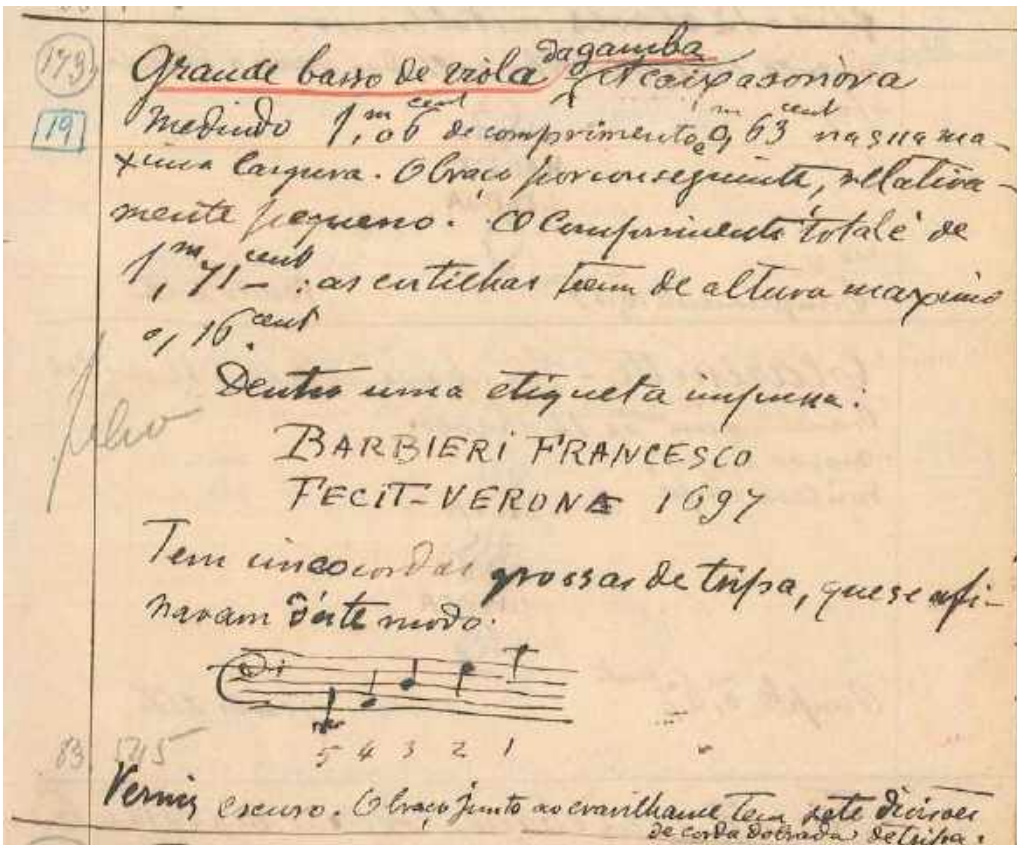 173
Grande basso de viola da gamba A caixa sonóra
19
medindo 1,m06 cent de comprimento, e 0,m63 cent na sua ma-
xima largura. O braço por conseguinte, rellativa-
mente pequeno. O Comprimento total é de
1,m71 cent : as entilhas teem de altura maxima
0,16 cent
Dentro uma etiqueta impressa:
BARBIERI FRANCESCO
FECIT-VERONA 1697
Tem cinco cordas grossas de tripa, que se afi-
navam d'éste modo.
5 4 3 2 1
83 545
Verniz escuro. O braço junto ao cravilhame tem sete divisoes
de corda dobrada de tripa.